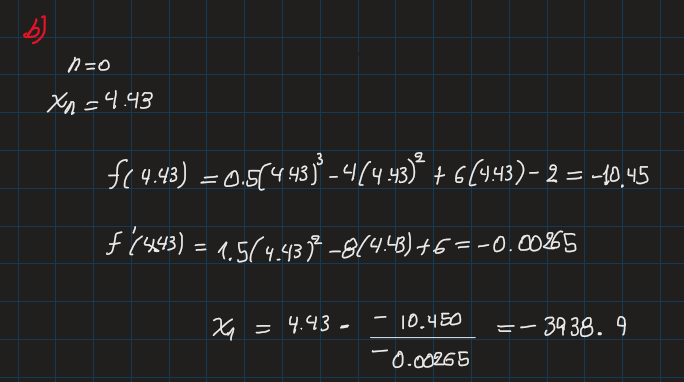 b)
n=0
xₙ = 4.43
f(4.43) = 0.5(4.43)³ - 4(4.43)² + 6(4.43) - 2 = -10.45
f'(4.43) = 1.5(4.43)² - 8(4.43) + 6 = -0.00265
x₁ = 4.43 - (-10.450 / -0.00265) = -3938.9